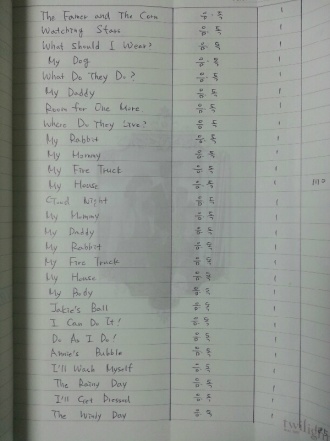 The Farmer and The Corn 음·독 1
Watching Stars 음·독 1
What Should I Wear? 음·독 1
My Dog 음·독 1
What Do They Do? 음·독 1
My Daddy 음·독 1
Room for One More 음·독 1
Where Do They Live? 음·독 1
My Rabbit 음·독 1
My Mommy 음·독 1
My Fire Truck 음·독 1
My House 음·독 1
Good Night 음·독 1
My Mommy 음·독 1
My Daddy 음·독 1
My Rabbit 음·독 1
My Fire Truck 음·독 1
My House 음·독 1
My Body 음·독 1
Jakie's Ball 음·독 1
I Can Do It! 음·독 1
Do As I Do! 음·독 1
Annie's Bubble 음·독 1
I'll Wash Myself 음·독 1
The Rainy Day 음·독 1
I'll Get Dressed 음·독 1
The Windy Day 음·독 1